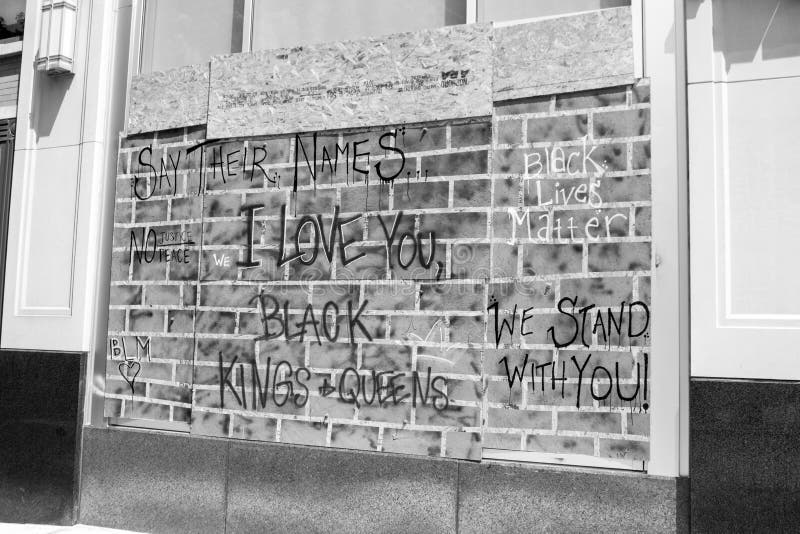 SAY THEIR NAMES...
Black
Lives
Matter
NO JUSTICE
PEACE
WE
I LOVE YOU,
BLACK
KINGS & QUEENS
WE STAND
WITH YOU!
BLM